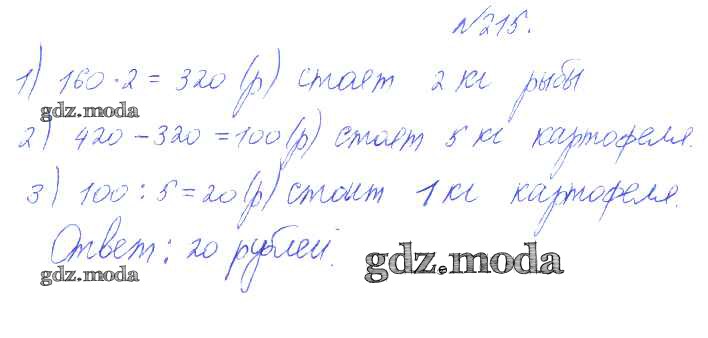 №215.
1) 160·2 = 320 (р) стоят 2 кг рыбы
gdz.moda
2) 420 – 320 = 100 (р) стоят 5 кг картофеля.
3) 100 : 5 = 20 (р) стоит 1 кг картофеля.
Ответ: 20 рублей.
gdz.moda
gdz.moda